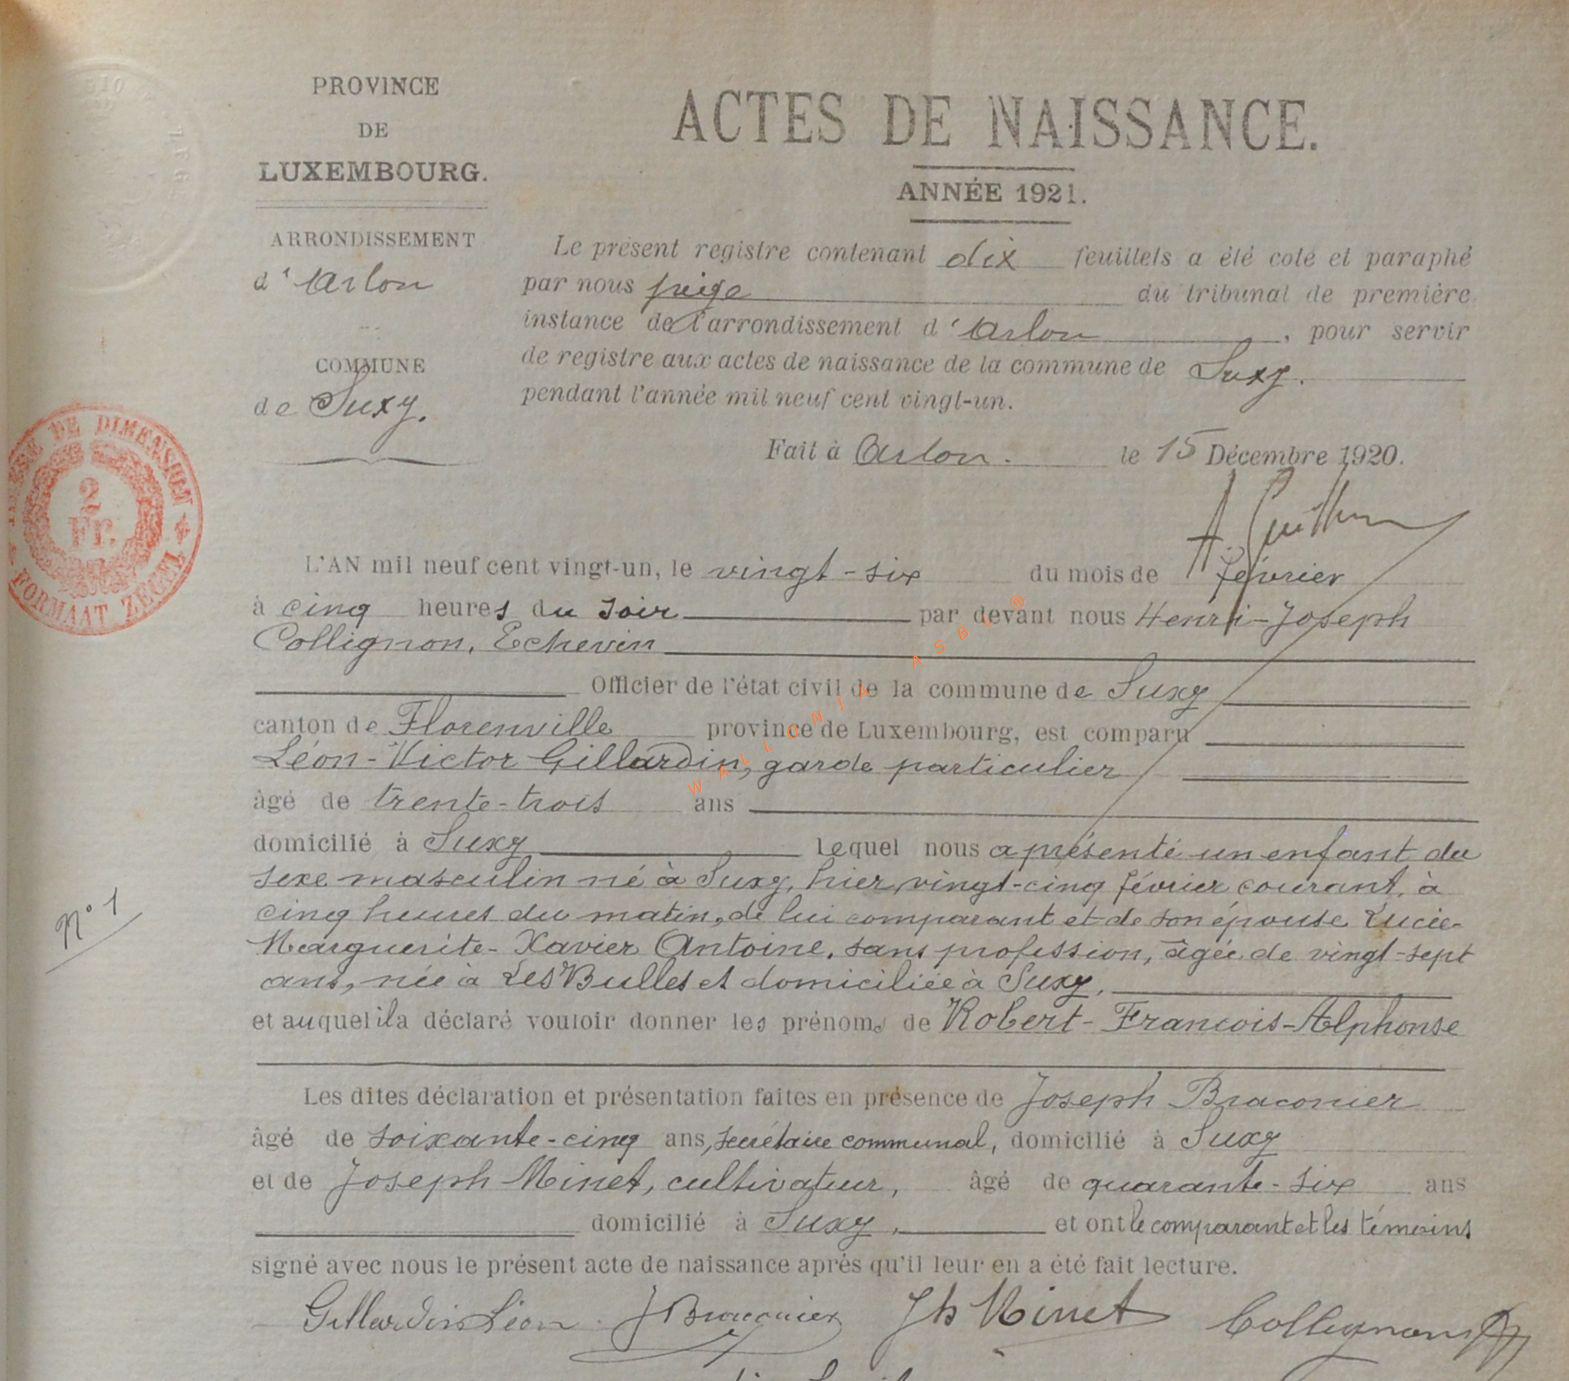 PROVINCE
DE
LUXEMBOURG.
ARRONDISSEMENT
d'Arlon
COMMUNE
de Suxy.
2
Fr.
FORMAAT ZEGEL
DE DIMENSION
ACTES DE NAISSANCE.
ANNÉE 1921.
Le présent registre contenant dix feuillets a été coté et paraphé
par nous juge du tribunal de première
instance de l'arrondissement d'Arlon, pour servir
de registre aux actes de naissance de la commune de Suxy.
pendant l'année mil neuf cent vingt-un.
Fait à Arlon. le 15 Décembre 1920.
L'AN mil neuf cent vingt-un, le vingt-six du mois de février
à cinq heures du soir par devant nous Henri-Joseph
Collignon, Echevin
Officier de l'état civil de la commune de Suxy
canton de Florenville province de Luxembourg, est comparu
Léon-Victor Gillardin, garde particulier
âgé de trente-trois ans
domicilié à Suxy Lequel nous a présenté un enfant du
sexe masculin né à Suxy, hier vingt-cinq février courant, à
cinq heures du matin, de lui comparant et de son épouse Lucie-
Marguerite-Xavier Antoine, sans profession, âgée de vingt-sept
ans, née à Les Bulles et domiciliée à Suxy,
et auquel il a déclaré vouloir donner les prénoms de Robert-François-Alphonse
Les dites déclaration et présentation faites en présence de Joseph Braconier
âgé de soixante-cinq ans, secrétaire communal, domicilié à Suxy
et de Joseph Minet, cultivateur, âgé de quarante-six ans
domicilié à Suxy, et ont le comparant et les témoins
signé avec nous le présent acte de naissance après qu'il leur en a été fait lecture.
Gillardin Léon J Braconier Jh Minet Collignon
N° 1
WALLONIA ASBL ®